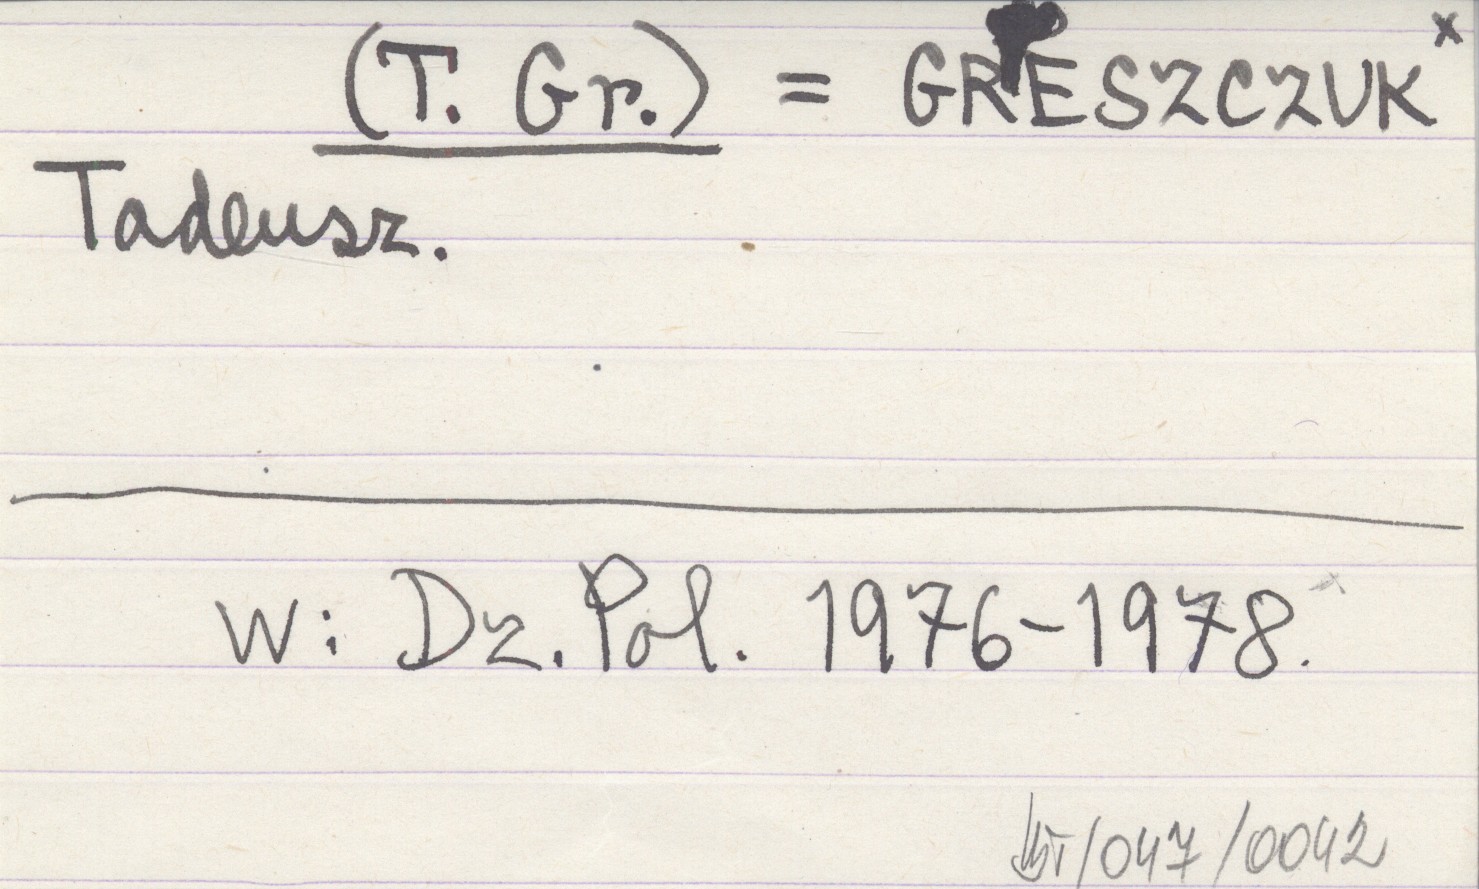 (T. Gr.) = GRESZCZUK x
Tadeusz.
W: Dz. Pol. 1976-1978.
/047/0042